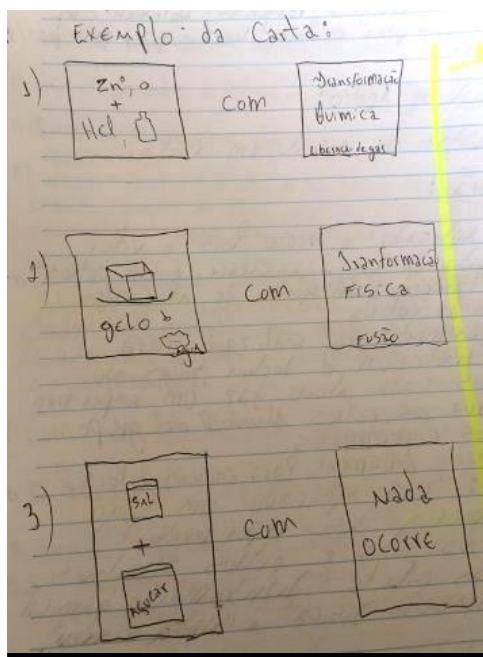 Exemplo da Carta:
1)
Zn°, o
+
HCl,
com
Transformação
Química
liberação de gás
2)
gelo
água
com
Tranformação
Física
Fusão
3)
Sal
+
Açucar
com
Nada
ocorre